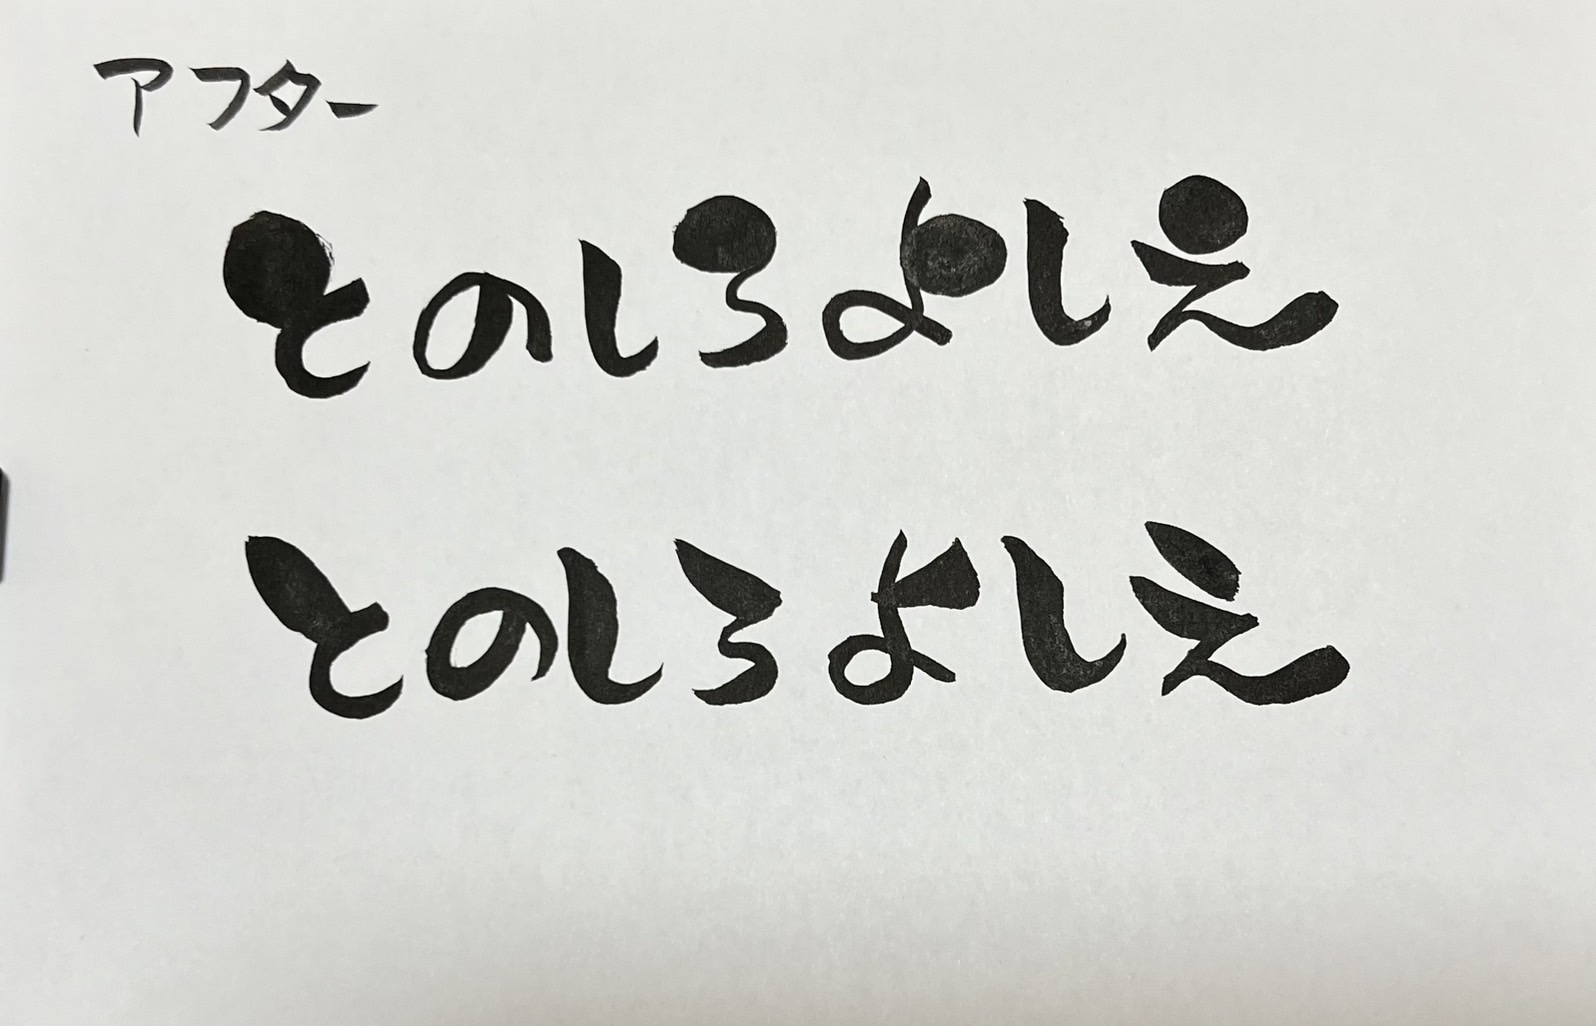 アフター
とのしろよしえ
とのしろよしえ